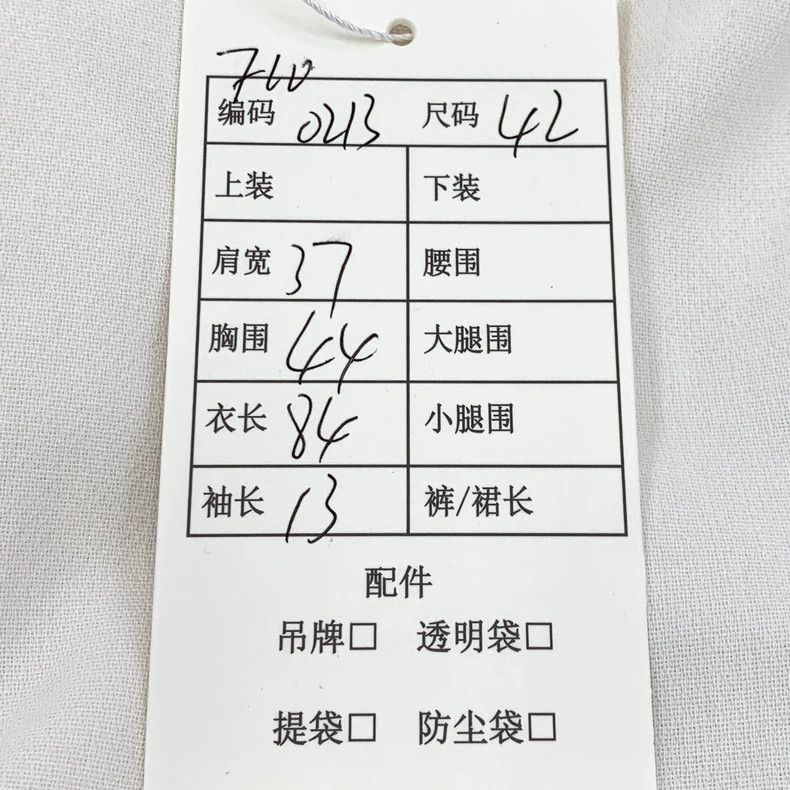 编码 0213 尺码 42
上装 下装
肩宽 37 腰围
胸围 44 大腿围
衣长 84 小腿围
袖长 13 裤/裙长
配件
吊牌□ 透明袋□
提袋□ 防尘袋□